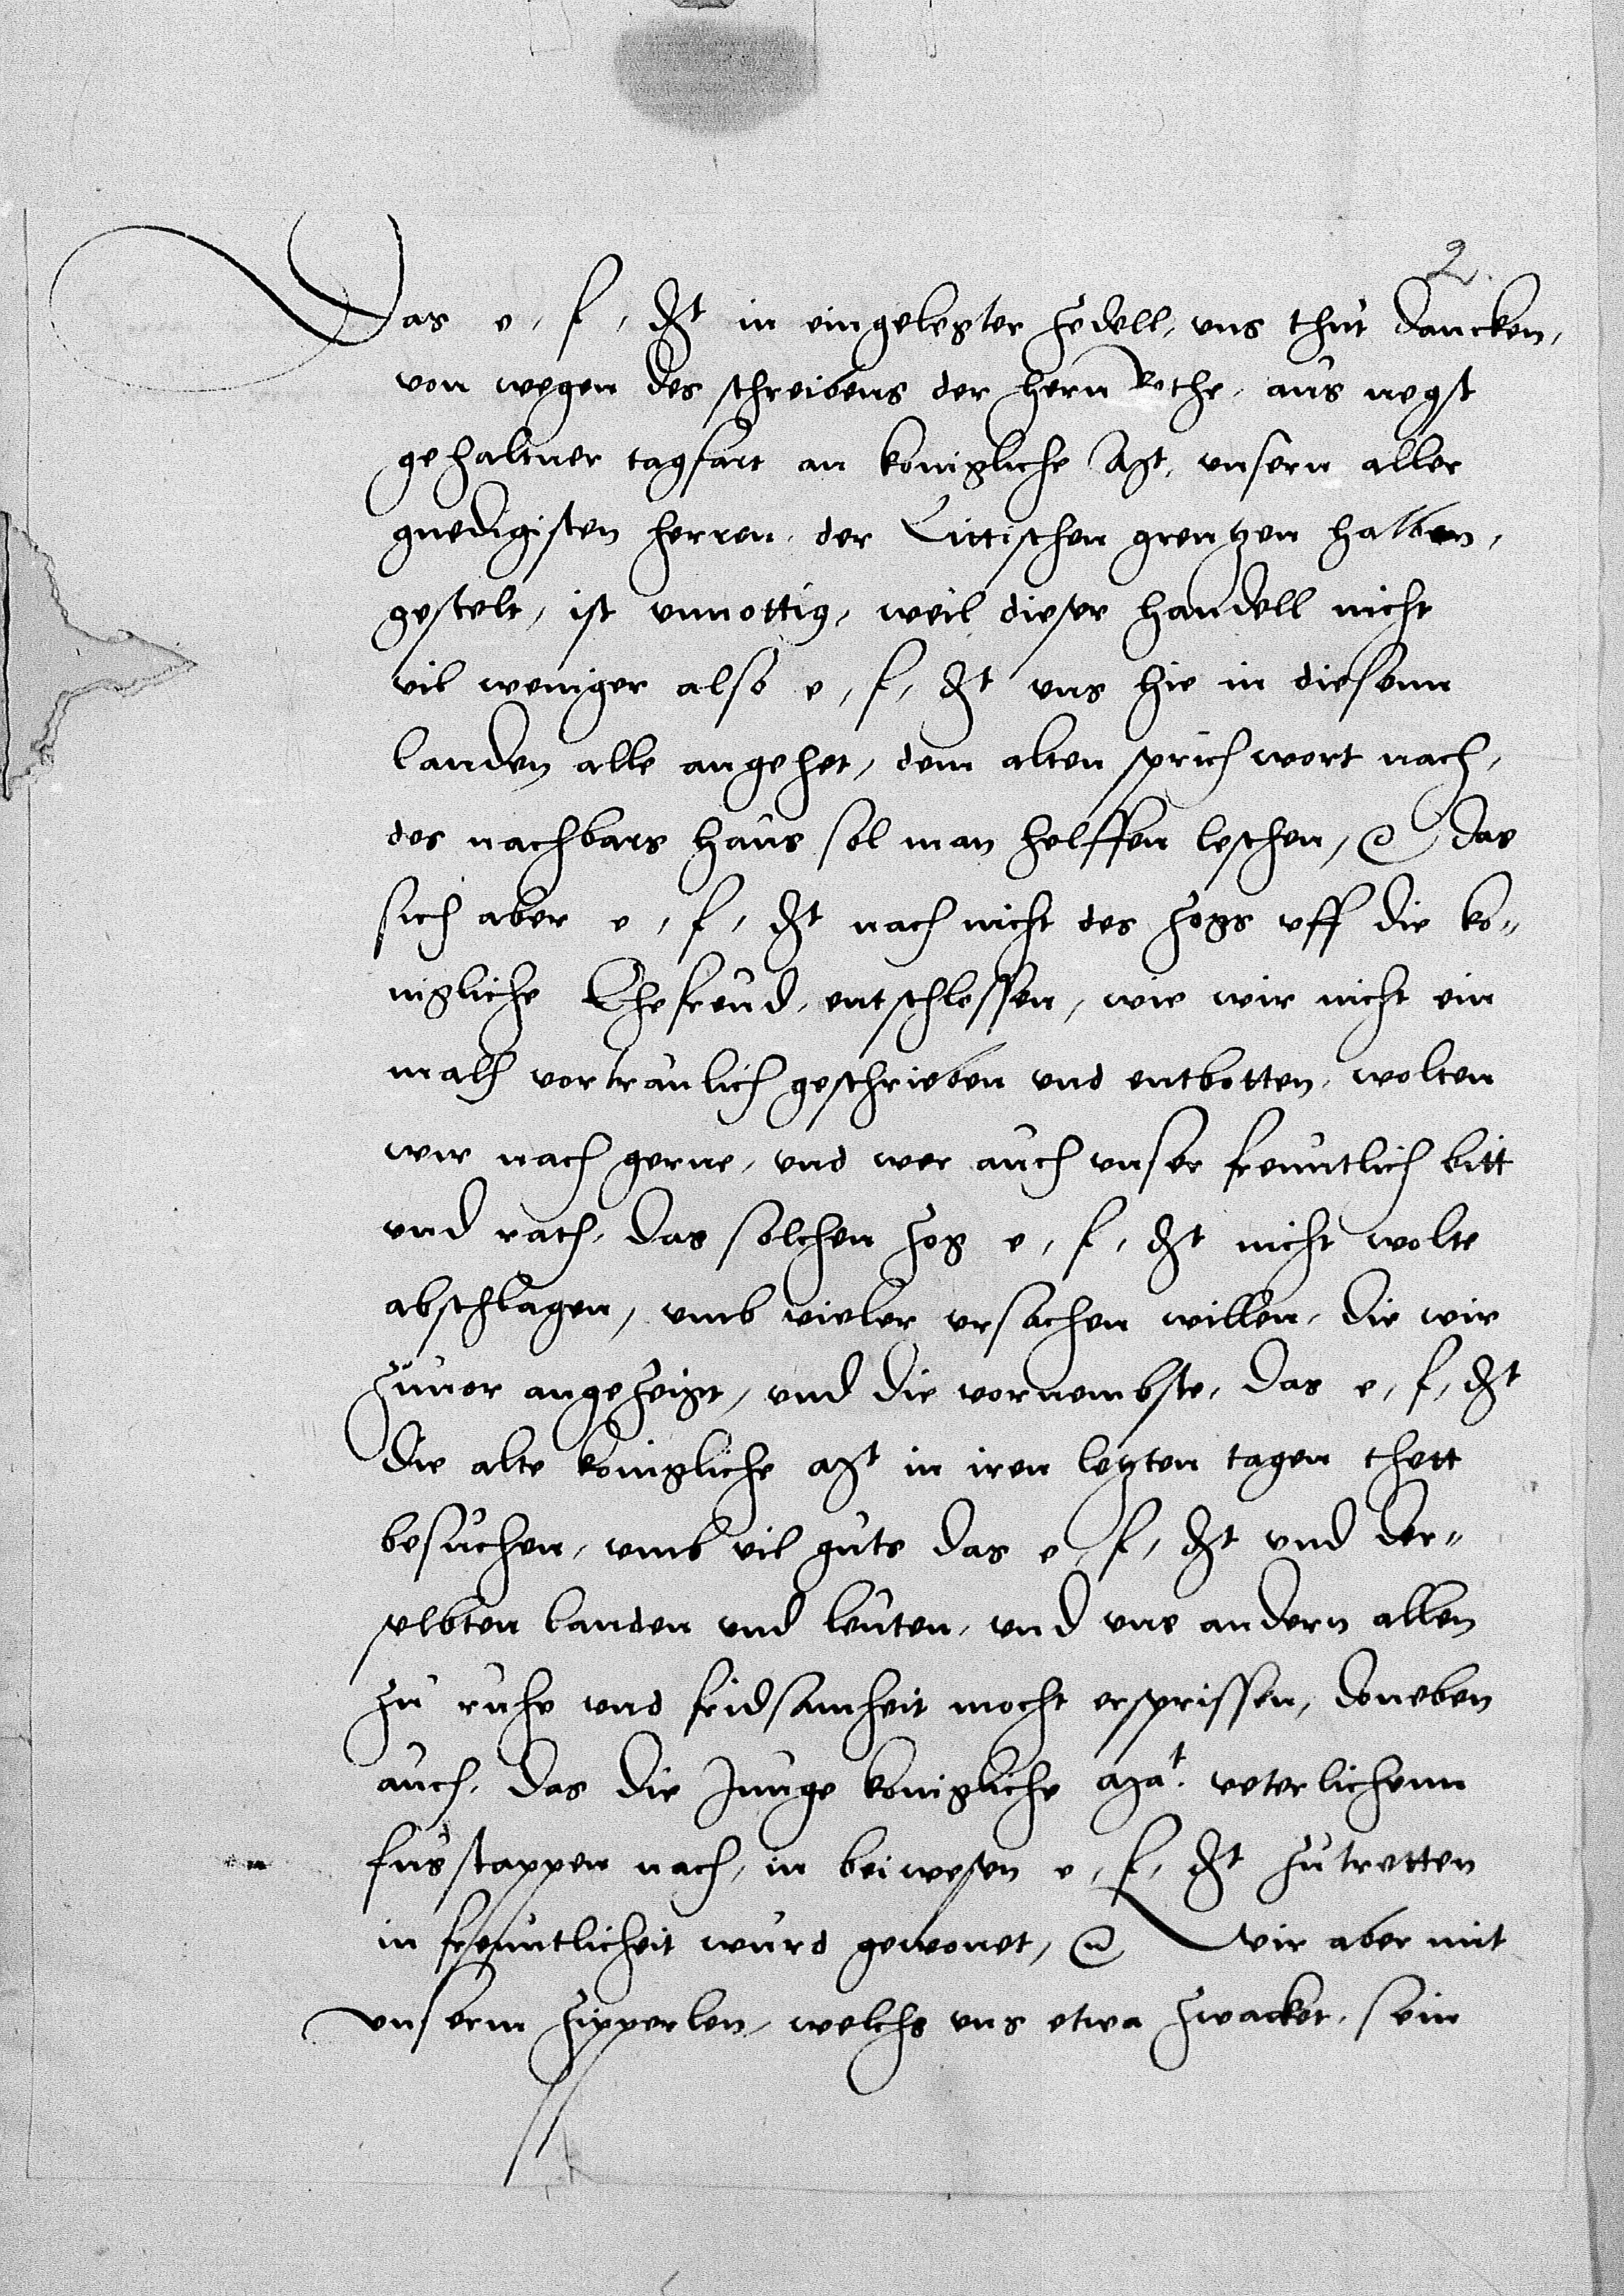 2.
Das e, f, gt in eingelegter zedell, uns thut dancken,
von wegen des schreibens der hern Rethe, aus negst
gehaltner tagfart an konigliche Mt, unsern aller
gnedigisten herren, der Littischen grentzen halben,
gestelt, ist unnottig, weil dieser handell nicht
vil weniger also e, f, gt uns hie in diesenn
landen alle angehet, dem alten sprichwort nach,
des nachbars haus sol man helffen leschen, etc das
sich aber e, f, gt nach nicht des zogs uff die ko-
nigliche Ehefreud, entschlossen, wie wir nicht ein
malh vertraulich geschrieben und entbotten, wolten
wir nach gerne, und wer auch unser freuntlich bitt
und rath, das solchen zog e, f, gt nicht wolte
abschlagen, umb vieler ursachen willen, die wir
zuuor angezeigt, und die vornembste, das e, f, gt
die alte konigliche Mt in iren letzten tagen thett
besuchen, umb vil guts das e, f, gt und der-
selbten landen und leuten, und uns andern allen
zu ruhe und fridsamheit mocht ersprissen, doneben
auch, das die Junge konigliche Mat. veterlichenn
fusstappen nach, in beiwesen e, f, gt zutretten
in freuntlicheit wurd gewonet, etc Wir aber mit
unserm zipperlen, welchs uns etwa zwacket, sein